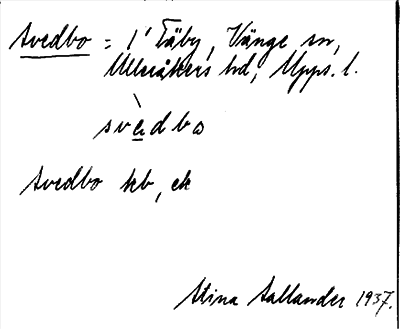 Svedbo = i Täby, Vänge sn,
Ulleråkers hd, Upps. l.
svèdbo
Svedbo kb, ek
Stina Sallander 1937.